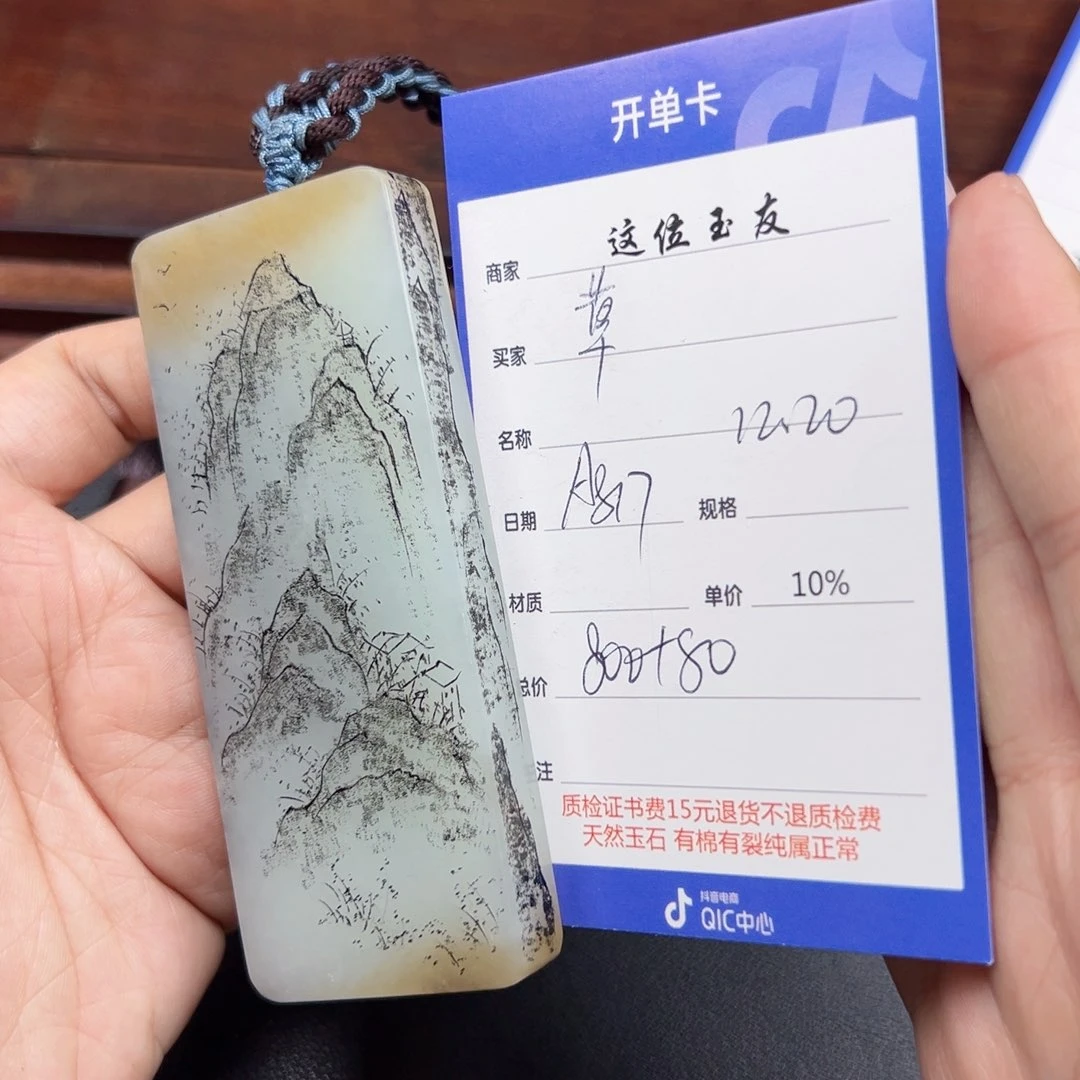 开单卡
商家 这位玉友
买家 草
名称 12.20
日期 A817 规格
材质 单价 10%
总价 800+80
注
质检证书费15元退货不退质检费
天然玉石 有棉有裂纯属正常
抖音电商
QIC中心